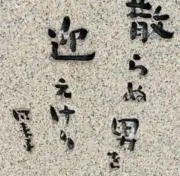 散らぬ男を
迎えけり